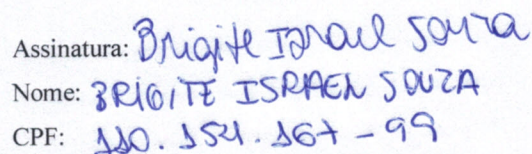 Assinatura: Brigite Israel Souza
Nome: BRIGITE ISRAEL SOUZA
CPF: 110.154.167-99